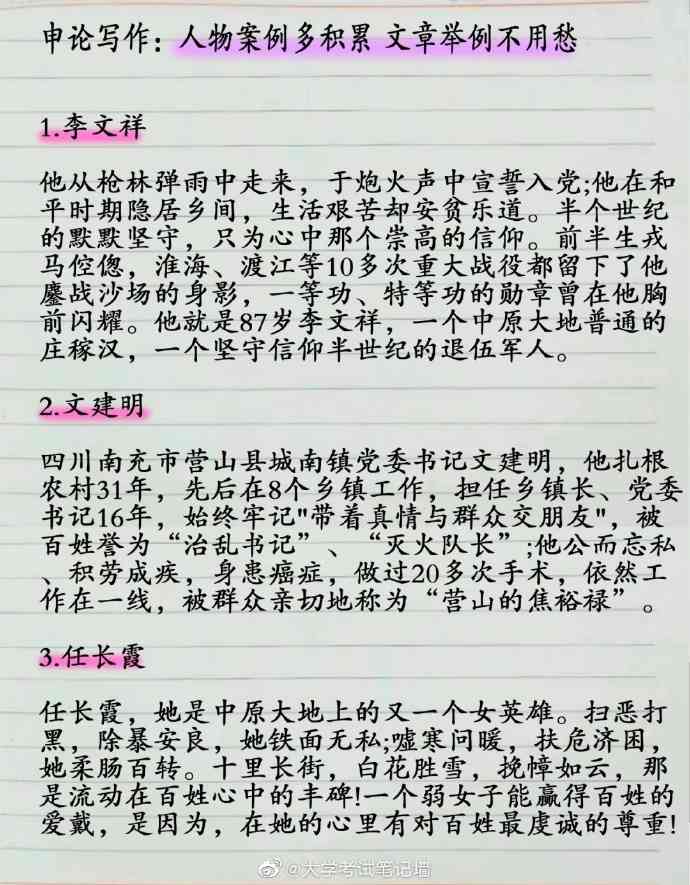 申论写作：人物案例多积累 文章举例不用愁
1.李文祥
他从枪林弹雨中走来，于炮火声中宣誓入党;他在和
平时期隐居乡间，生活艰苦却安贫乐道。半个世纪
的默默坚守，只为心中那个崇高的信仰。前半生戎
马倥偬，淮海、渡江等10多次重大战役都留下了他
鏖战沙场的身影，一等功、特等功的勋章曾在他胸
前闪耀。他就是87岁李文祥，一个中原大地普通的
庄稼汉，一个坚守信仰半世纪的退伍军人。
2.文建明
四川南充市营山县城南镇党委书记文建明，他扎根
农村31年，先后在8个乡镇工作，担任乡镇长、党委
书记16年，始终牢记"带着真情与群众交朋友"，被
百姓誉为“治乱书记”、“灭火队长”;他公而忘私
、积劳成疾，身患癌症，做过20多次手术，依然工
作在一线，被群众亲切地称为“营山的焦裕禄”。
3.任长霞
任长霞，她是中原大地上的又一个女英雄。扫恶打
黑，除暴安良，她铁面无私;嘘寒问暖，扶危济困，
她柔肠百转。十里长街，白花胜雪，挽幛如云，那
是流动在百姓心中的丰碑!一个弱女子能赢得百姓的
爱戴，是因为，在她的心里有对百姓最虔诚的尊重!
@大学考试笔记墙